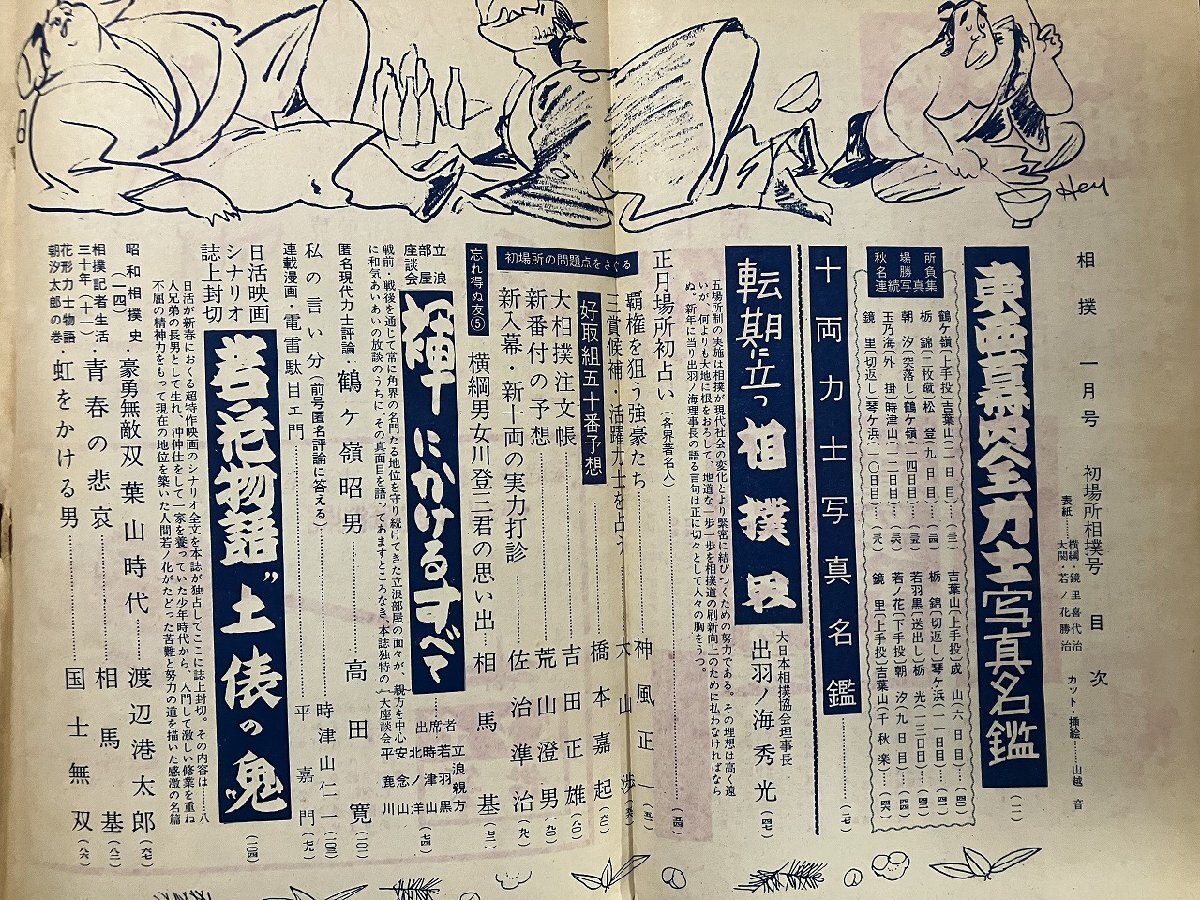 相撲 一月号 初場所相撲号 目次
表紙……横綱・鏡里喜代治
大関・若ノ花勝治
カット・挿絵……山越 音
Hey
東西幕内全力士写真名鑑
秋場所
名勝負
連続写真集
鶴ケ嶺(上手投)吉葉山(二日目)
栃錦
松登(九日目)
朝汐(突落し)鶴ケ嶺(一四日目)
玉乃海(外掛)時津山(一二日目)
鏡里(切返し)琴ケ浜(一〇日目)
吉葉山(上手投)成山(六日目)
栃錦(切返し)琴ケ浜(一一日目)
若羽黒(送出し)栃光(一三日目)
若ノ花(下手投)朝汐(九日目)
鏡里(上手投)吉葉山(千秋楽)
十両力士写真名鑑
転期に立つ相撲界
大日本相撲協会理事長
出羽ノ海秀光(四七)
五場所制の実施は相撲が現代社会の変化とより緊密に結びつくための努力である。その理想は高く遠
いが、何よりも大地に根をおろして、地道な一歩一歩を相撲道の刷新向上のために払わなければなら
ぬ。新年に当り出羽ノ海理事長の語る言句は正に切々として人々の胸をうつ。
正月場所初占い(各界著名人)
初場所の問題点をさぐる
覇権を狙う強豪たち……神風正一
三賞候補・活躍力士を占う……大山渉
好取組五十番予想……橋本嘉起
大相撲注文帳……吉田正雄(八〇)
新番付の予想……荒山澄男(九〇)
新入幕・新十両の実力打診……佐治準治
忘れ得ぬ友⑤
横綱男女川登三君の思い出……相馬基
立浪
部屋
座談会
褌にかけるすべて
戦前・戦後を通じて常に角界の名門たる地位を守り続けてきた立浪部屋の面々が、親方を中心
に和気あいあいの放談のうちに、その真面目を語ってあますところなき、本誌独特の大座談会
出席者
立浪親方
若羽黒
時津山
北ノ洋
安念山
平鹿川
(七四)
匿名現代力士評論・鶴ケ嶺昭男……高田寛(一〇一)
私の言い分(前号匿名評論に答える)……時津山仁一(一〇三)
連載漫画・電雷駄目エ門……平嘉門
日活映画
シナリオ
誌上封切
若ノ花物語“土俵の鬼”
(一〇四)
日活が新春におくる超特作映画のシナリオ全文を本誌が独占してここに誌上封切。その内容は……八
人兄弟の長男として生れ、沖仲仕をして一家を養っていた少年時代から、入門して激しい修業を重ね
不屈の精神力をもって現在の地位を築いた人間若ノ花がたどった苦難と努力の道を描いた感激の名篇
昭和相撲史(一四)・豪勇無敵双葉山時代……渡辺港太郎(六七)
相撲記者生活三十年(十一)・青春の悲哀……相馬基(八二)
花形力士物語朝汐太郎の巻・虹をかける男……国士無双(八六)